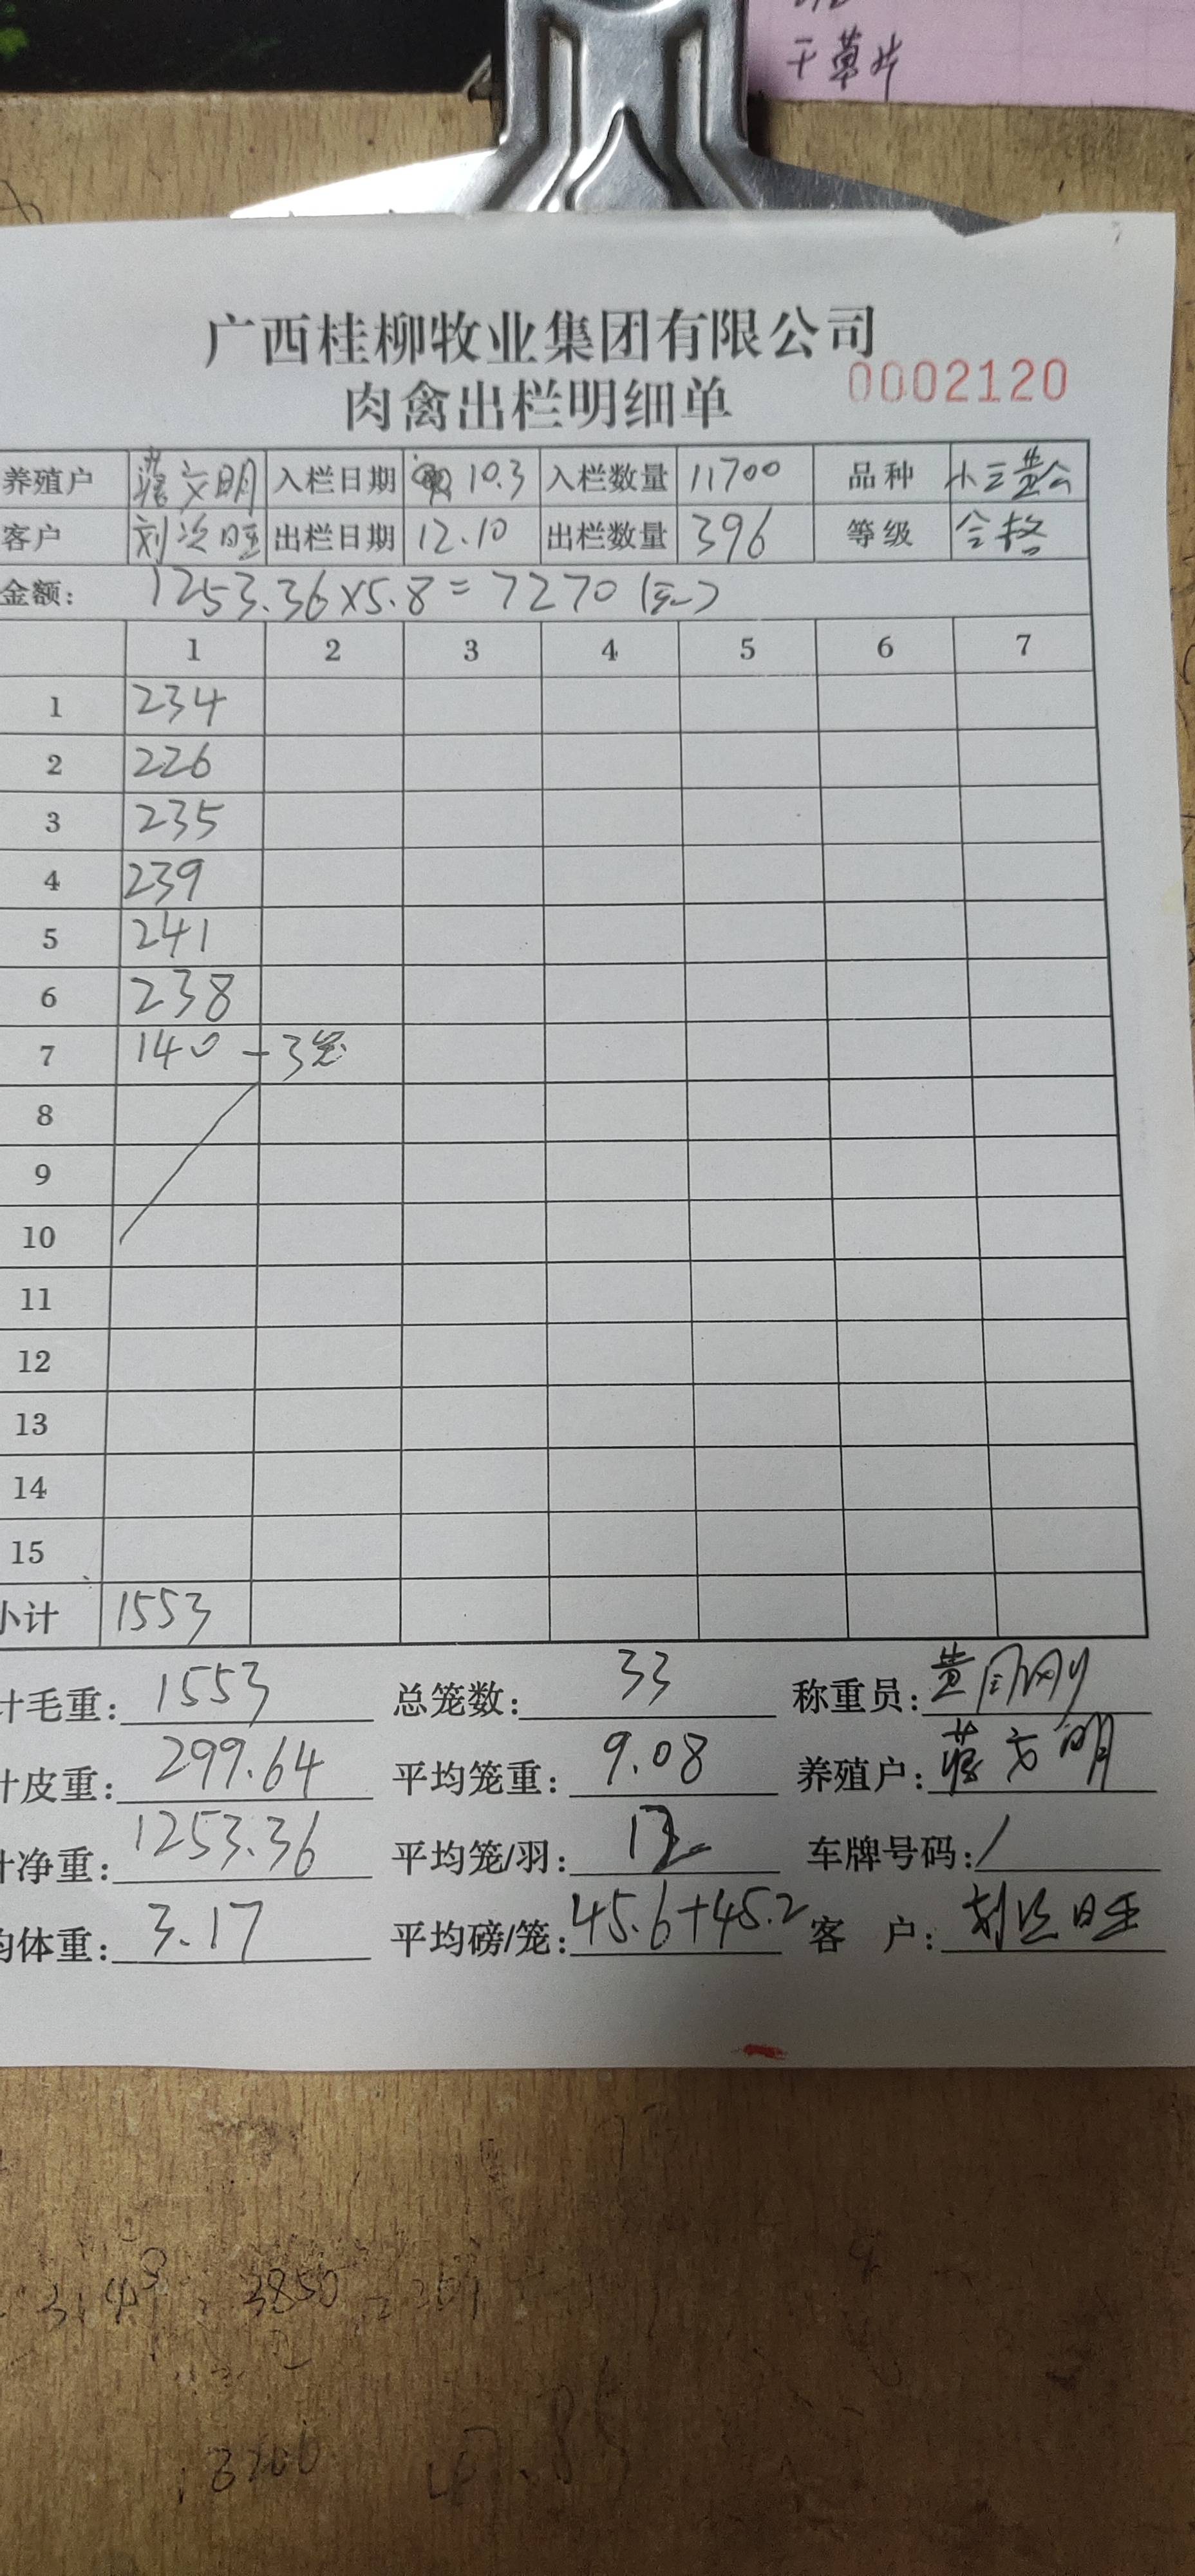 干草片
广西桂柳牧业集团有限公司
肉禽出栏明细单 0002120
养殖户 蒋文明 入栏日期 10.3 入栏数量 11700 品种 小三黄公
客户 刘次旺 出栏日期 12.10 出栏数量 396 等级 合格
金额: 1253.36×5.8=7270(元)
1 2 3 4 5 6 7
1 234
2 226
3 235
4 239
5 241
6 238
7 140 -3笼
8
9
10
11
12
13
14
15
小计 1553
计毛重: 1553 总笼数: 33 称重员: 黄刚
计皮重: 299.64 平均笼重: 9.08 养殖户: 蒋文明
计净重: 1253.36 平均笼/羽: 12 车牌号码: /
均体重: 3.17 平均磅/笼: 45.6+45.2 客 户: 刘次旺
3850